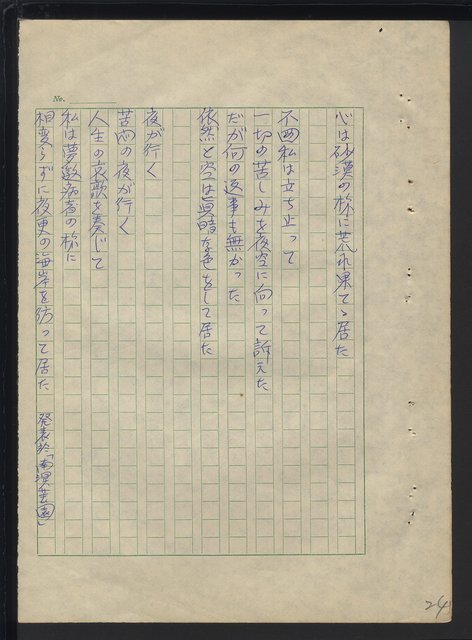 心は砂漠の様に荒れ果てゝ居た
不図私は立ち止って
一切の苦しみを夜空に向って訴えた
だが何の返事も無かった
依然と空は真暗な色をして居た
夜が行く
苦悩の夜が行く
人生の哀歌を奏じて
私は夢遊病者の様に
相変らずに夜更の海岸を彷って居た
発表於「南溟芸園」
No.
24